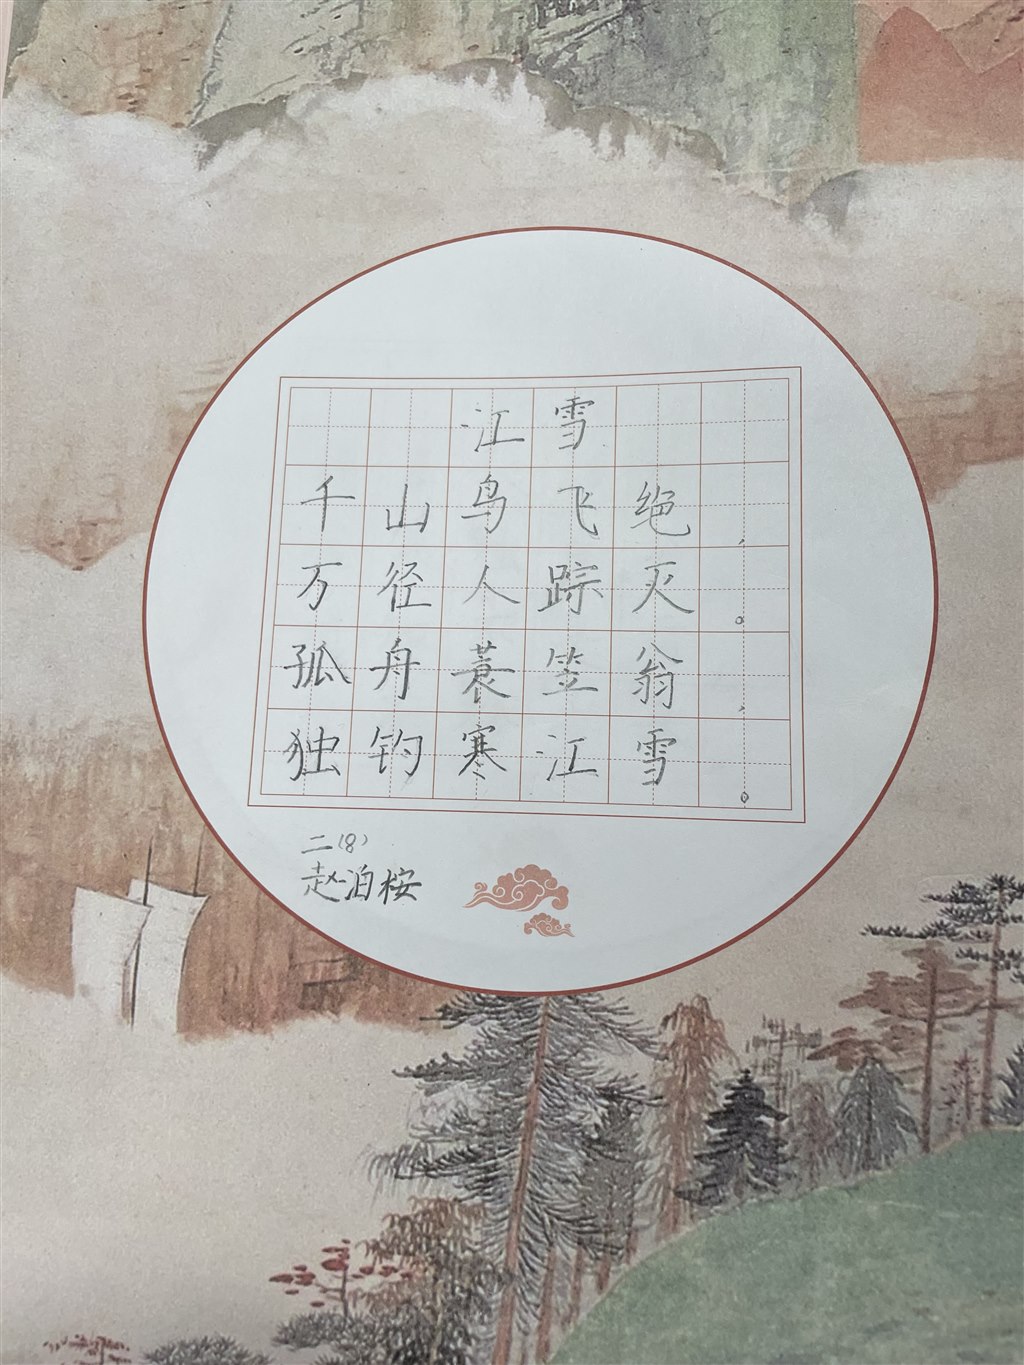 江雪
千山鸟飞绝，
万径人踪灭。
孤舟蓑笠翁，
独钓寒江雪。
二(8)
赵泊桉